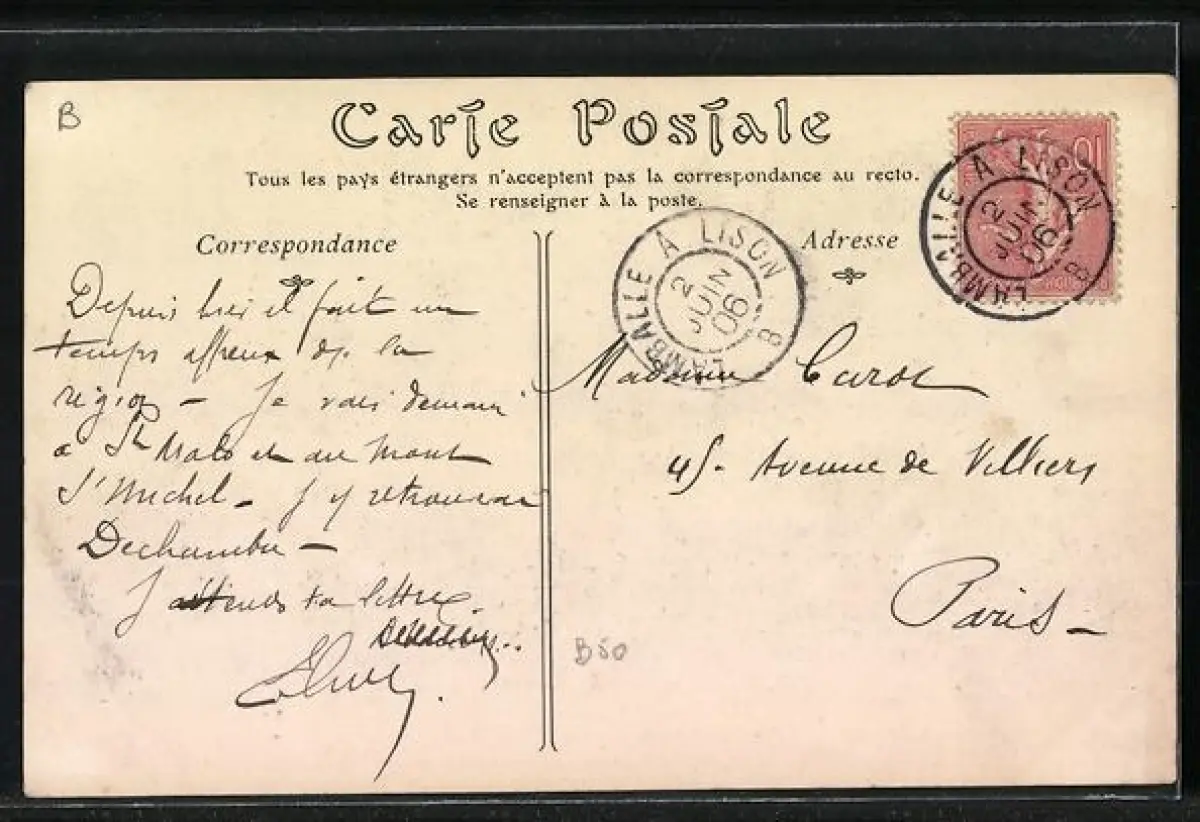 B
Carte Postale
Tous les pays étrangers n'acceptent pas la correspondance au recto.
Se renseigner à la poste.
Correspondance
Depuis hier il fait un
temps affreux ds la
région – Je vais demain
à St Malo et au Mont
St Michel – J'y retrouverai
J'attends ta lettre
Adresse
Madame
45 – Avenue de Villiers
Paris –
B50
LAMBALLE A LISON
2
JUIN
06
B
10
LAMBALLE A LISON
2
JUIN
06
B